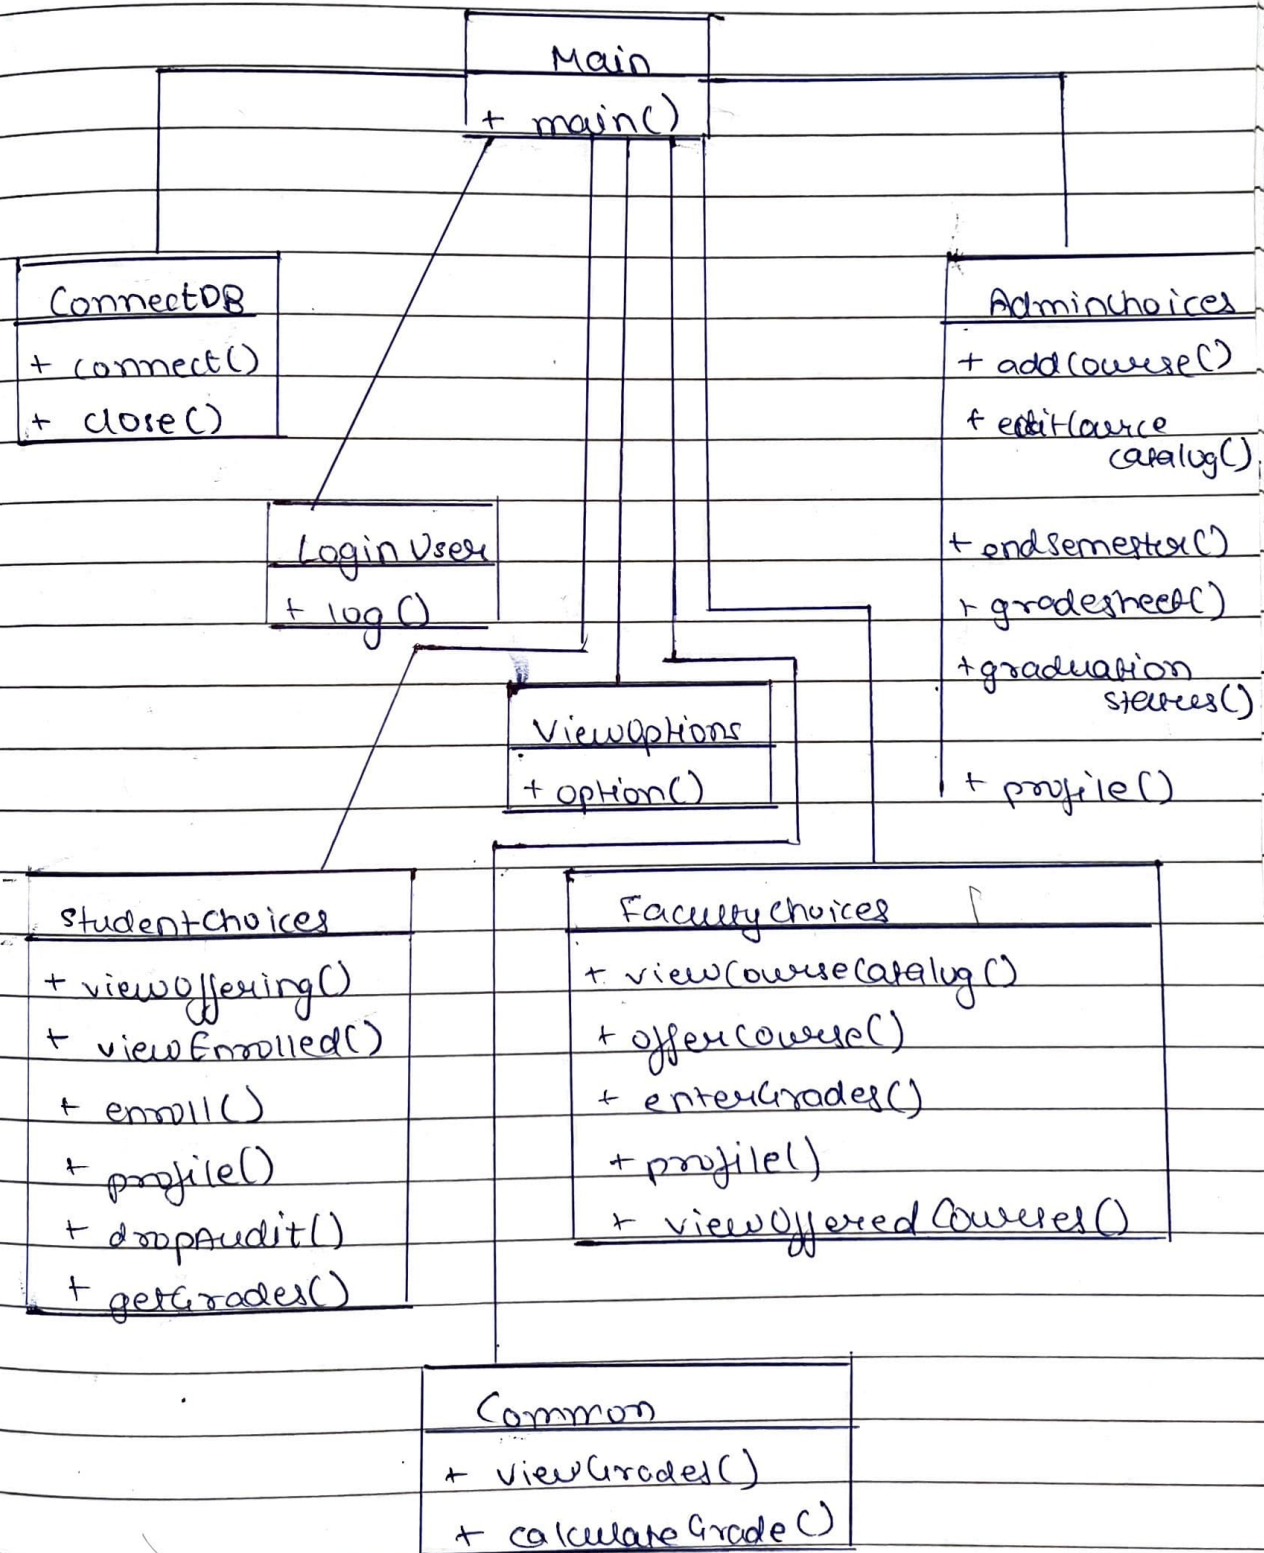 Main
+ main()
ConnectDB
+ connect()
+ close()
AdminChoices
+ addCourse()
+ editCource
catalog()
+ endSemester()
+ gradesheet()
+ graduation
status()
+ profile()
Login User
+ log()
ViewOptions
+ option()
StudentChoices
+ viewOffering()
+ viewEnrolled()
+ enroll()
+ profile()
+ dropAudit()
+ getGrades()
FacultyChoices
+ viewCourseCatalog()
+ offerCourse()
+ enterGrades()
+ profile()
+ viewOffered Courses()
Common
+ viewGrades()
+ calculateGrade()